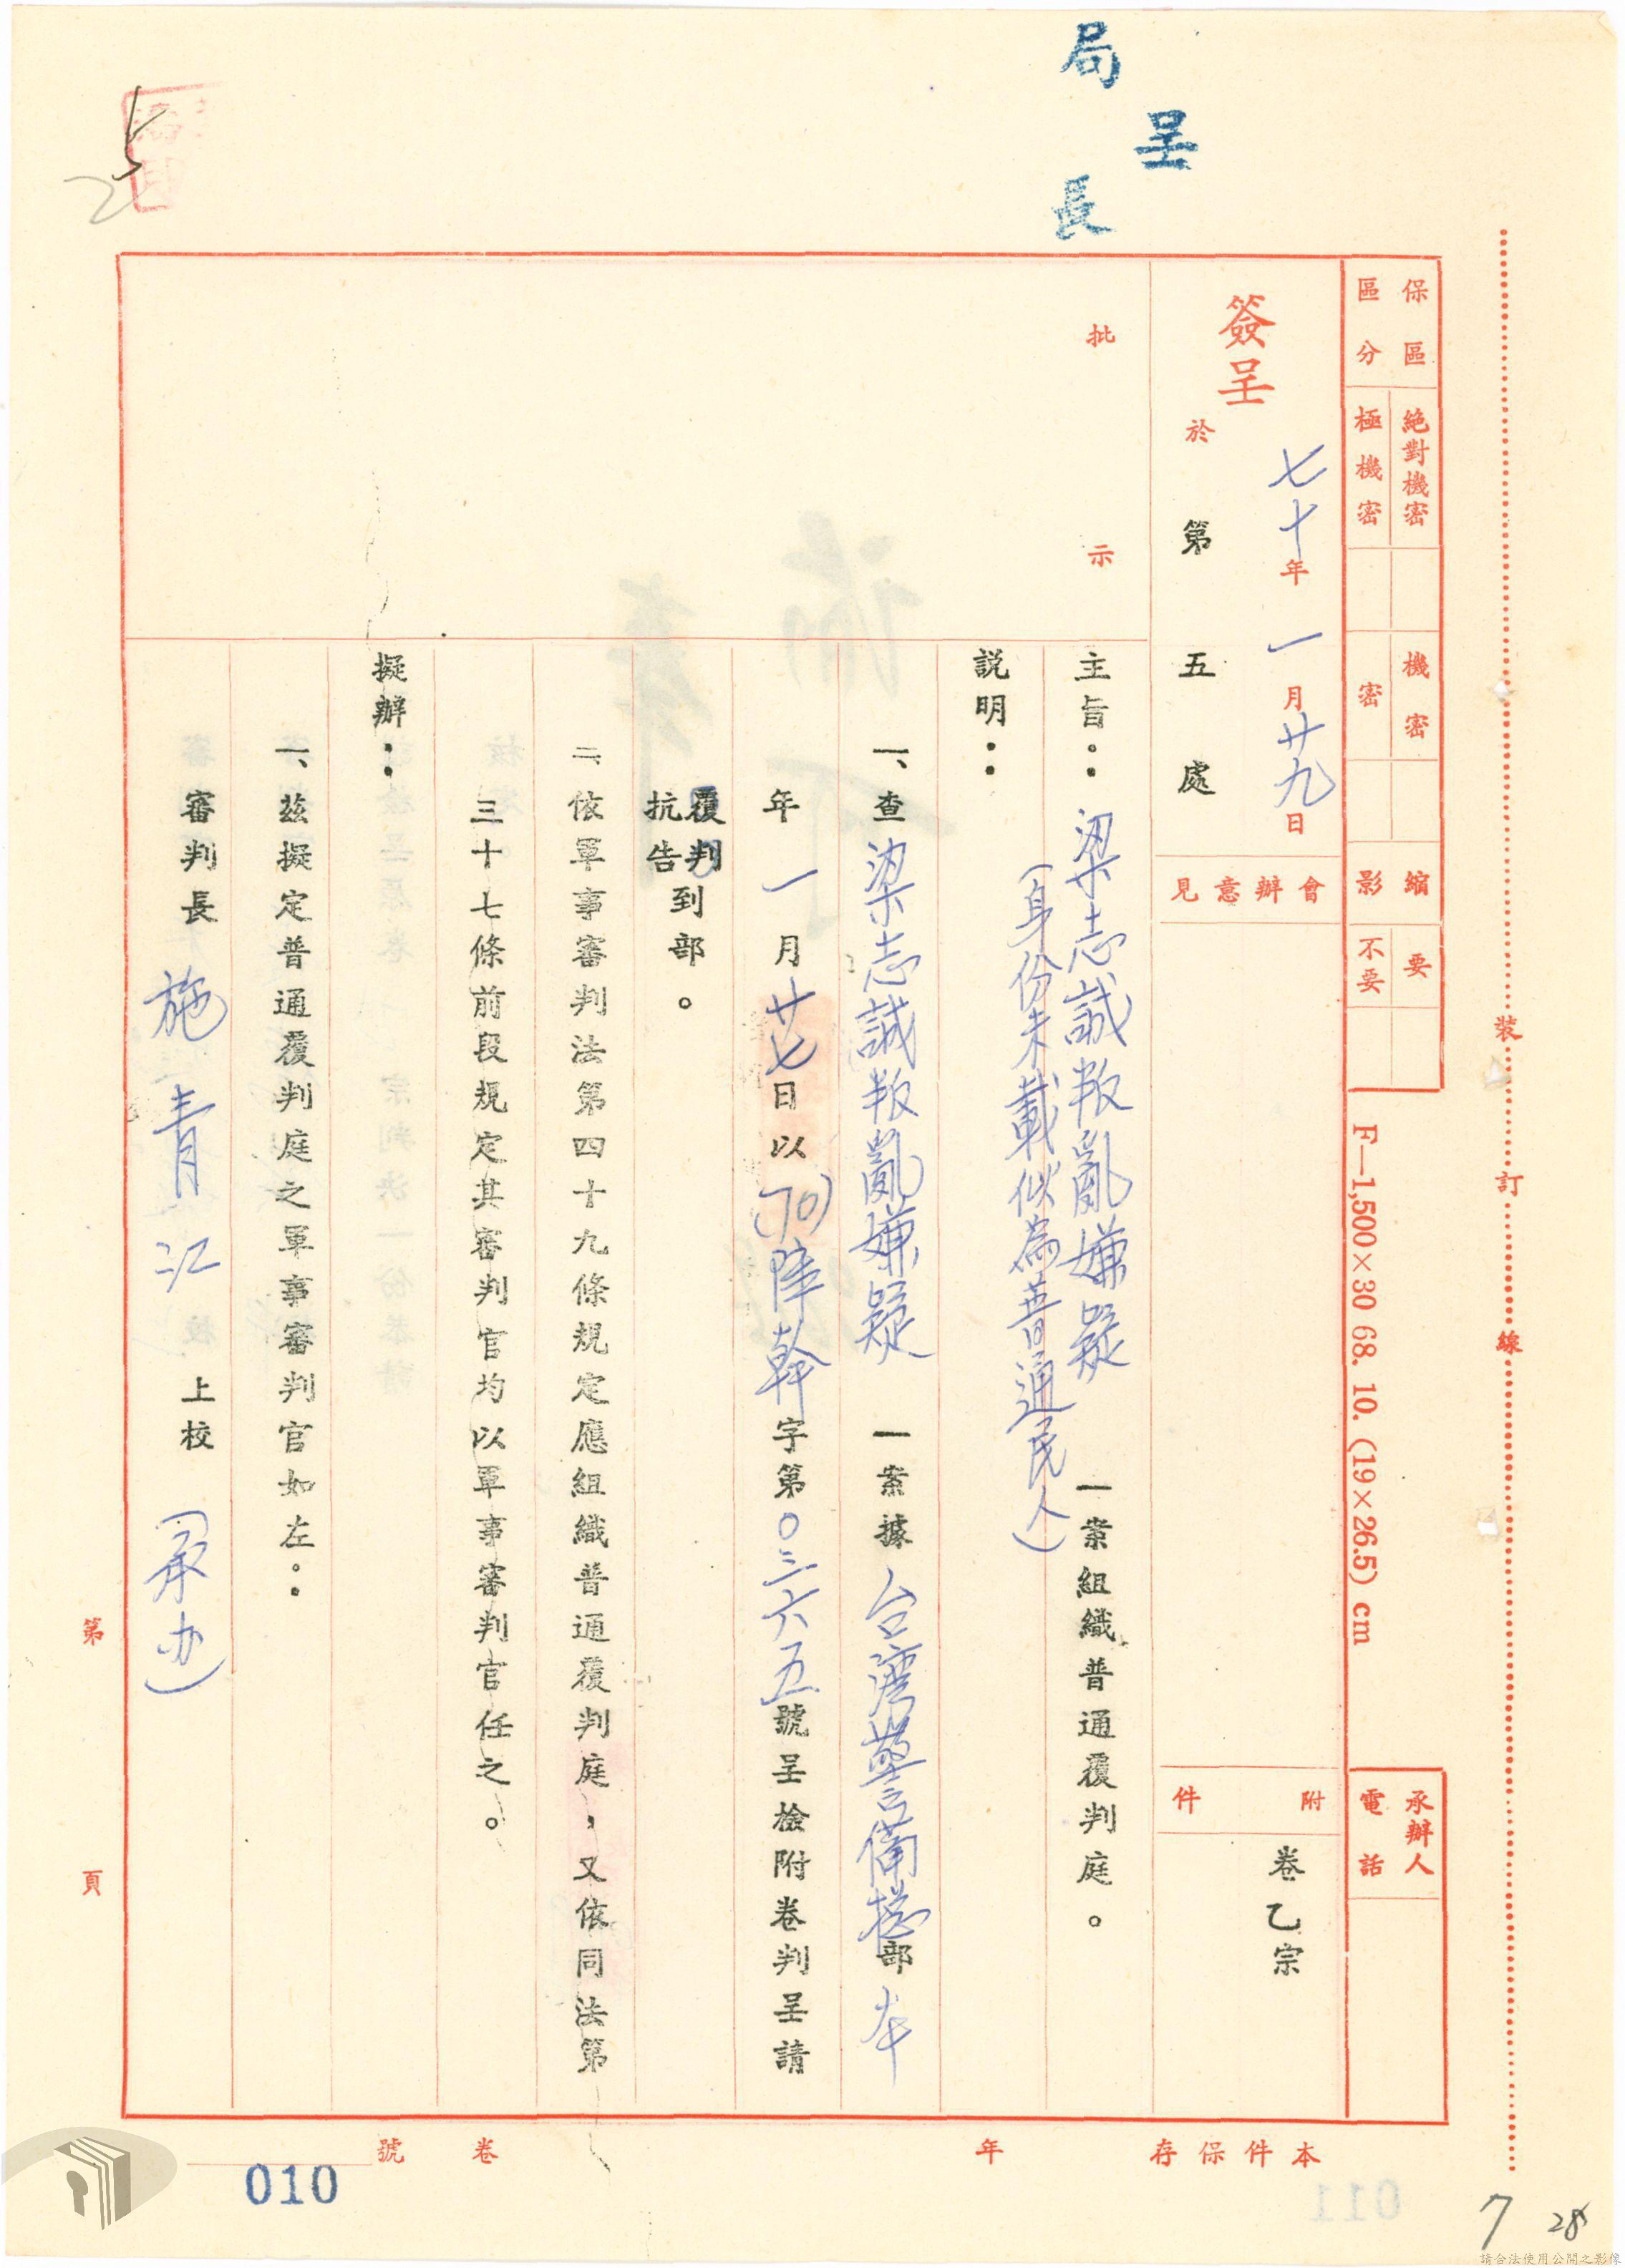 局長
呈
保區區分
絕對機密
極機密
機密
密
縮影
要
不要
F—1,500×30 68. 10. (19×26.5) cm
承辦人
電話
簽呈
七十年一月廿九日
於第五處
會辦意見
附件
卷乙宗
批示
主旨：梁志誠叛亂嫌疑一案組織普通覆判庭。
（身份未載似為普通民人）
說明：
一、查梁志誠叛亂嫌疑一案據台灣警備總部本
年一月廿七日以(70)障幹字第〇三六五號呈檢附卷判呈請
覆判
抗告
到部。
二、依軍事審判法第四十九條規定應組織普通覆判庭，又依同法第
三十七條前段規定其審判官均以軍事審判官任之。
擬辦：
一、茲擬定普通覆判庭之軍事審判官如左：
審判長 施青江 上校 （承办）
裝
訂
線
第頁
本件保存年
卷號
010
011
5
2
7
28
請合法使用公開之影像